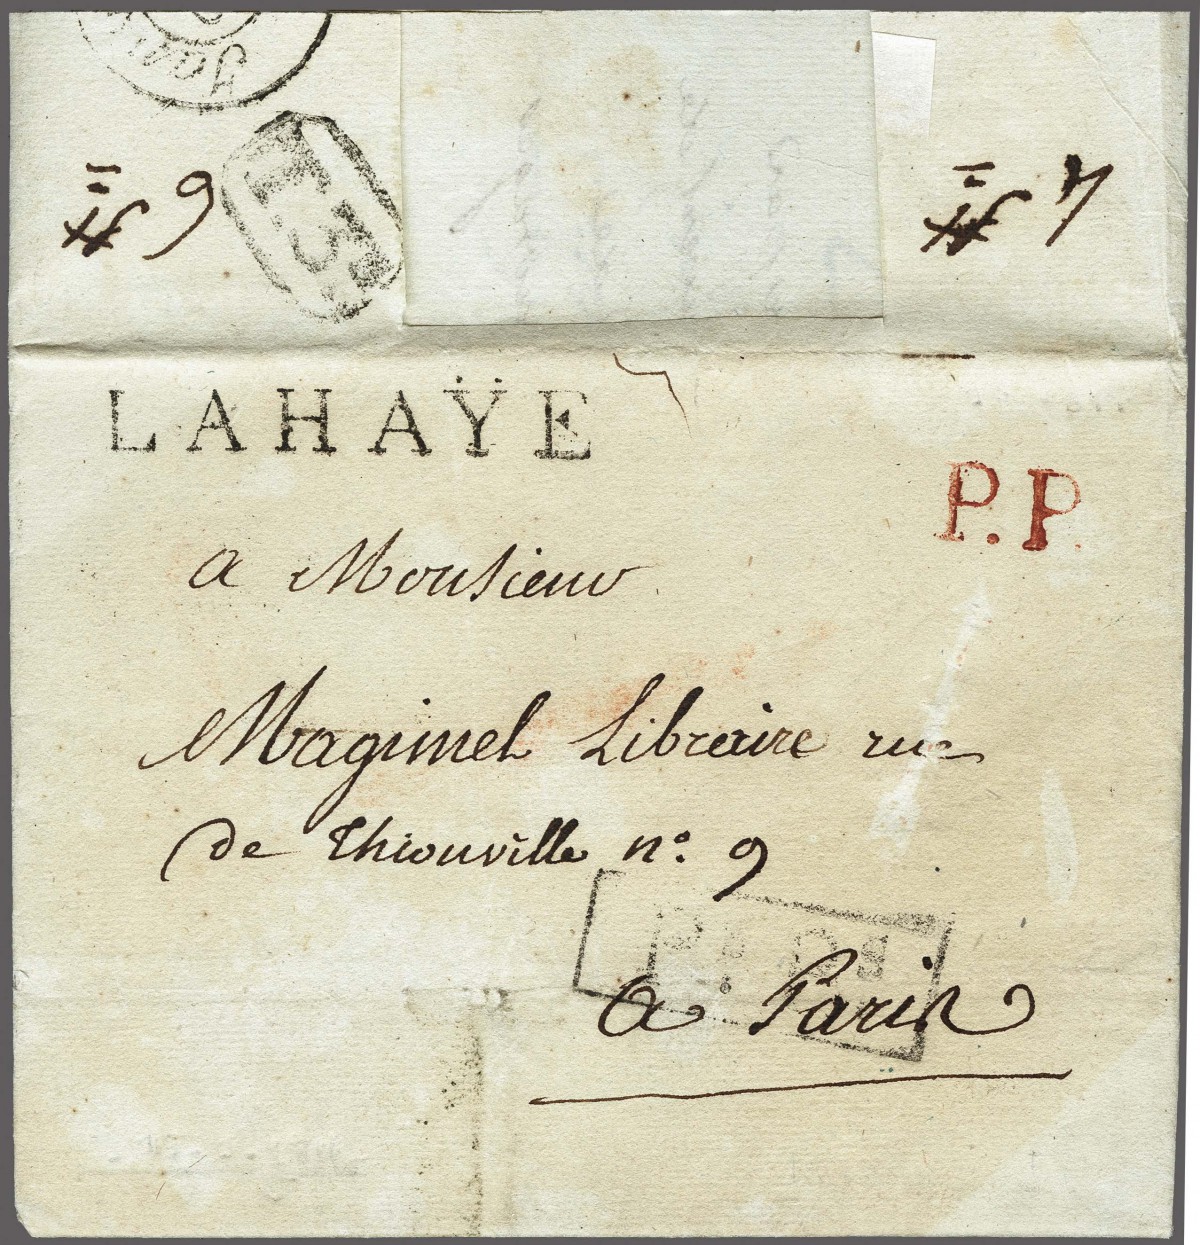 Janv
9
T.S.
7
LAHAŸE
P.P.
a Monsieur
Magimel Libraire rue
de Thionville n.° 9
a Paris